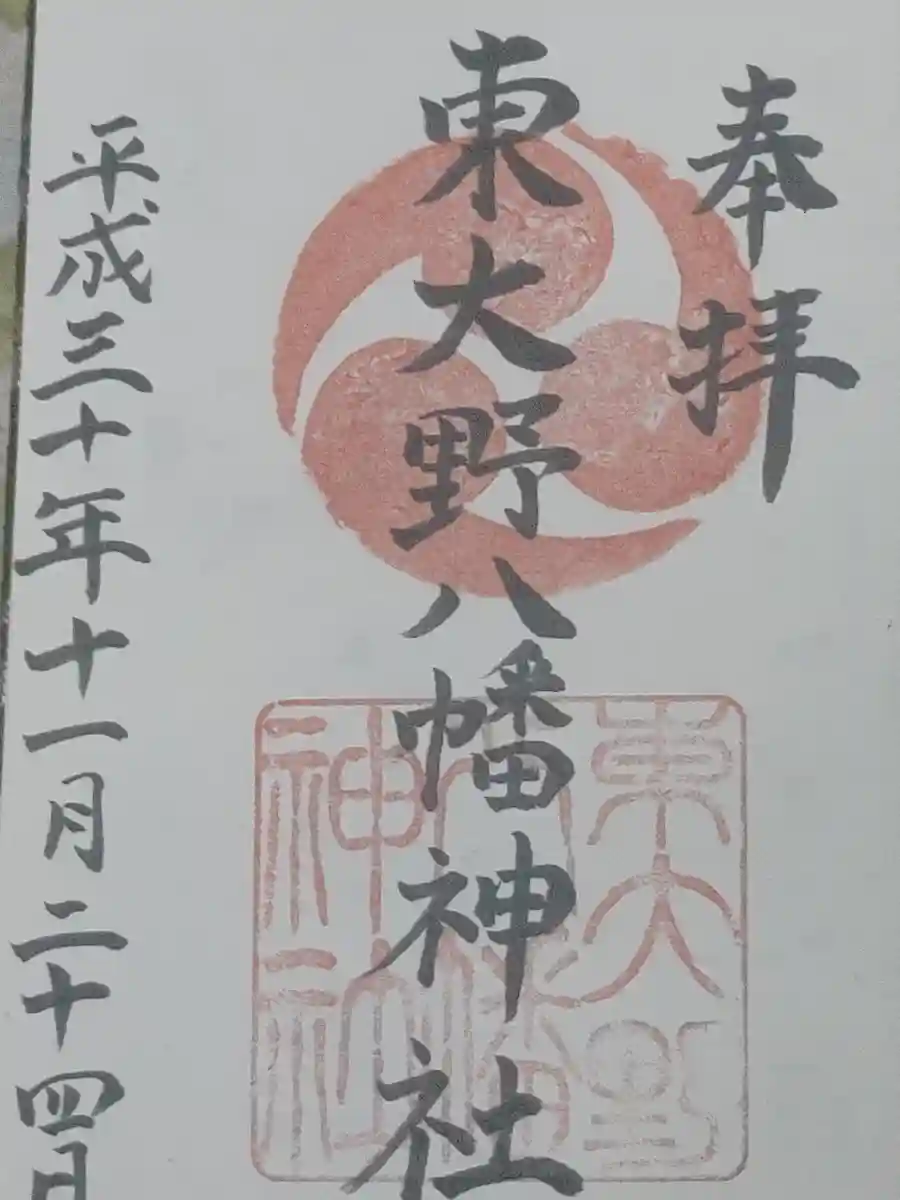 奉拝
東大野八幡神社
東大野八幡神社
平成三十年十一月二十四日